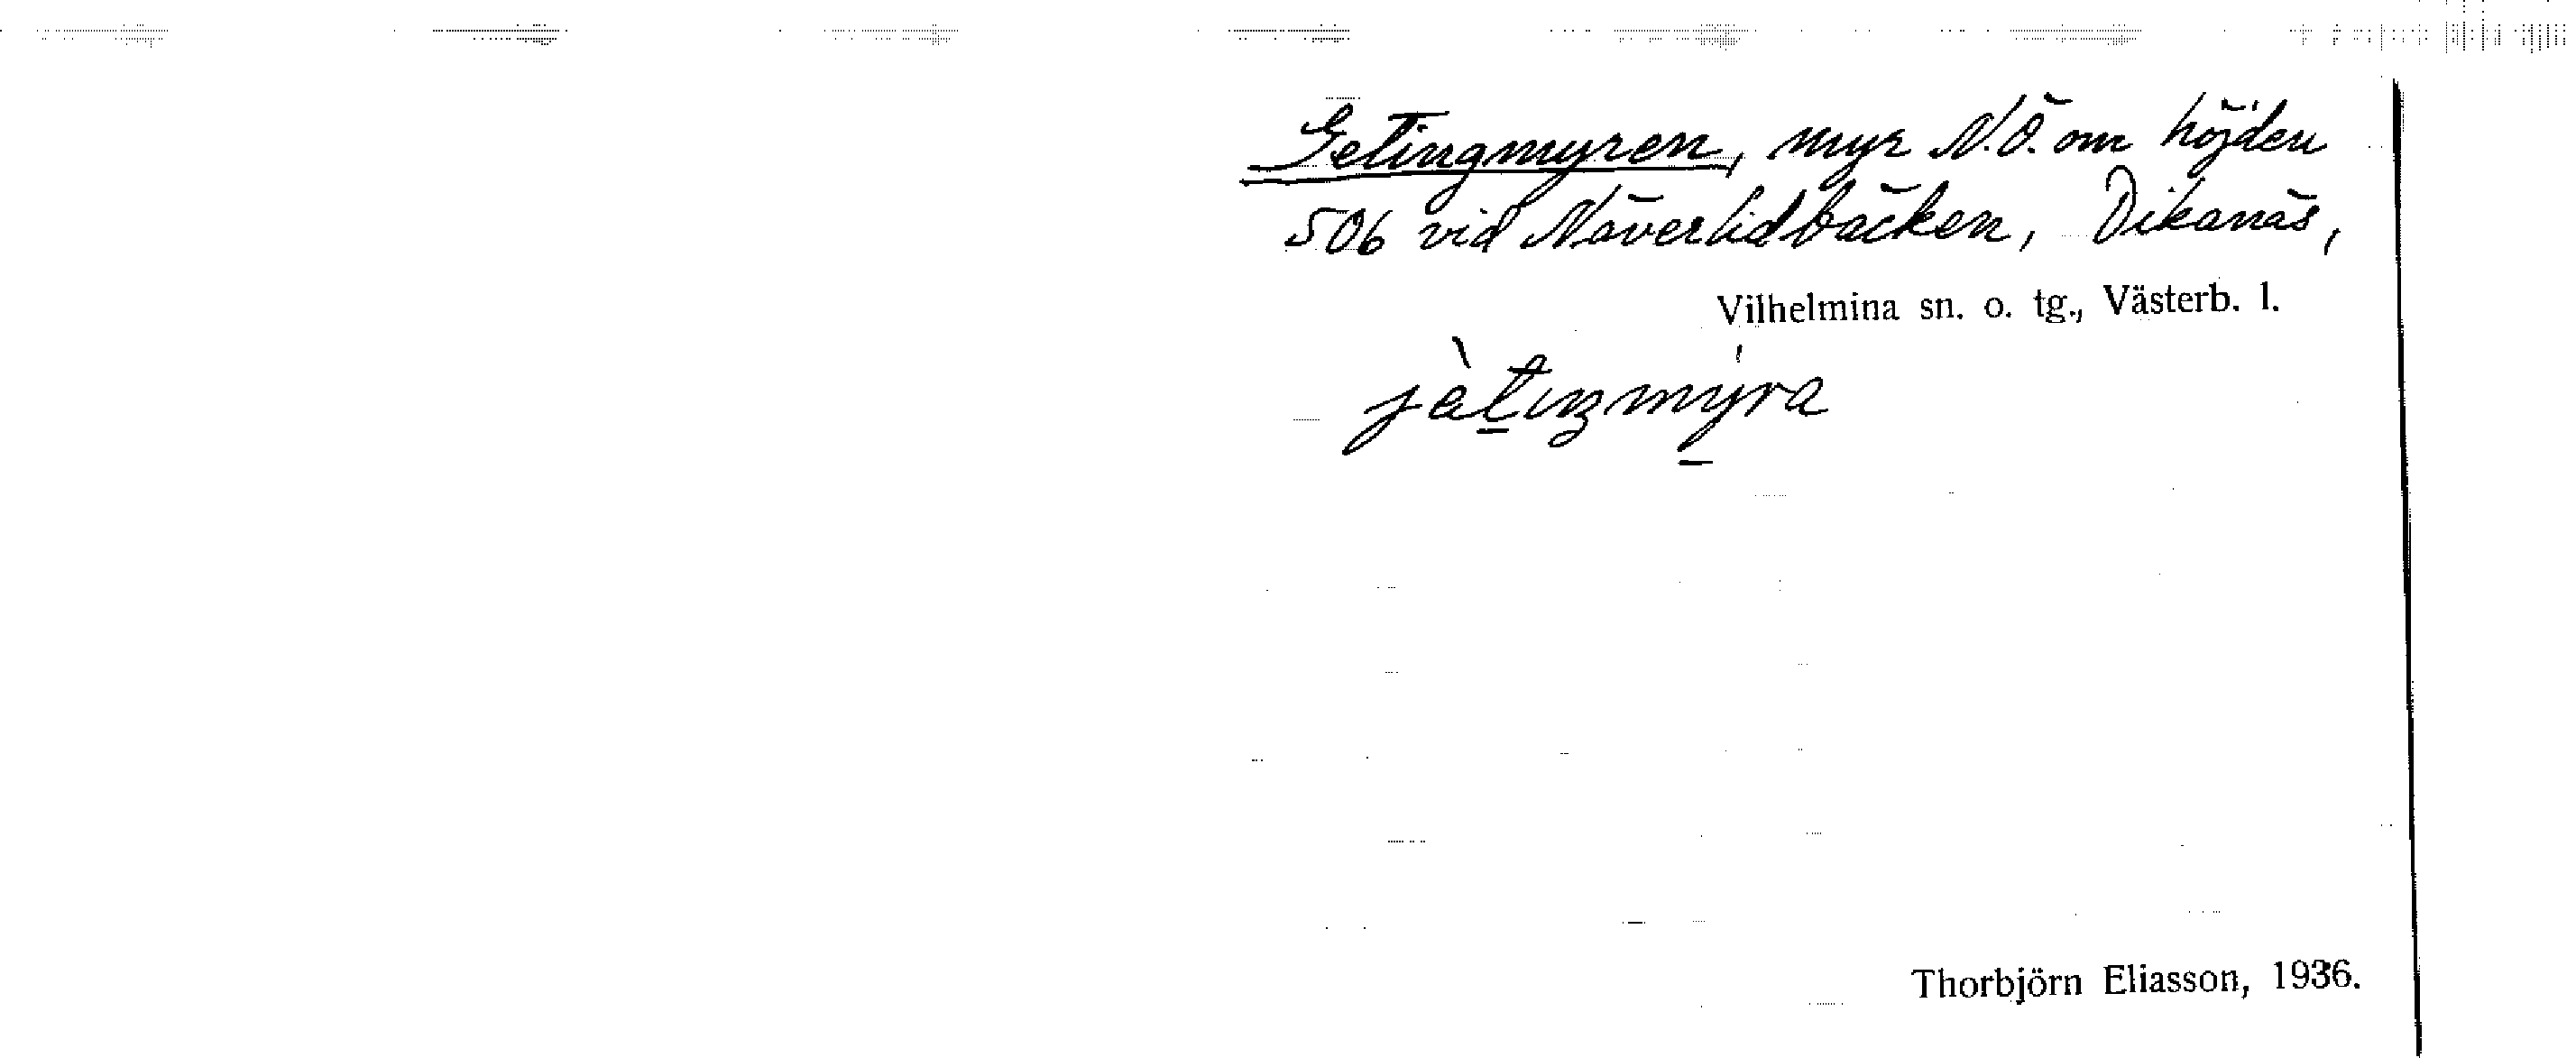 Getingmyren, myr N.Ö. om höjden
506 vid Näverlidbäcken, Dikanäs,
Vilhelmina sn. o. tg., Västerb. l.
jètıŋmy̠ra
Thorbjörn Eliasson, 1936.